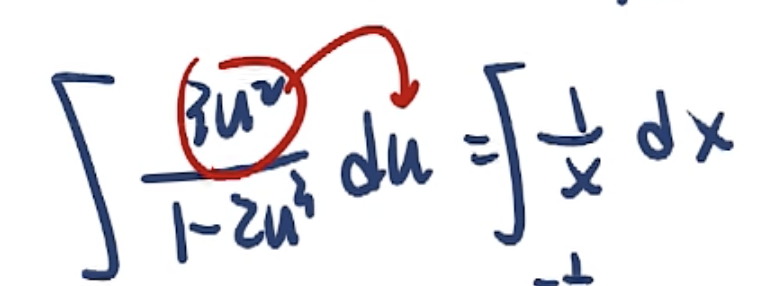 ∫ 3u² / (1-2u³) du = ∫ 1/x dx